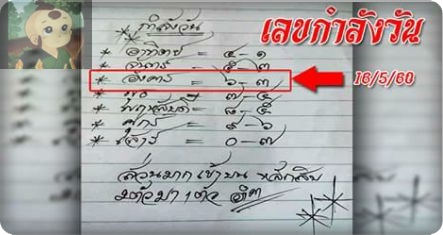 เลขกำลังวัน
16/5/60
กำลังวัน
* อาทิตย์ = ๔-๑
* จันทร์ = ๕-๓
* อังคาร = ๖-๓
* พุธ = ๗-๔
* พฤหัสบดี = ๘-๕
* ศุกร์ = ๙-๖
* เสาร์ = ๐-๗
ส่วนมาก เข้าบน หลักสิบ
มตัวมา 1 ตัว